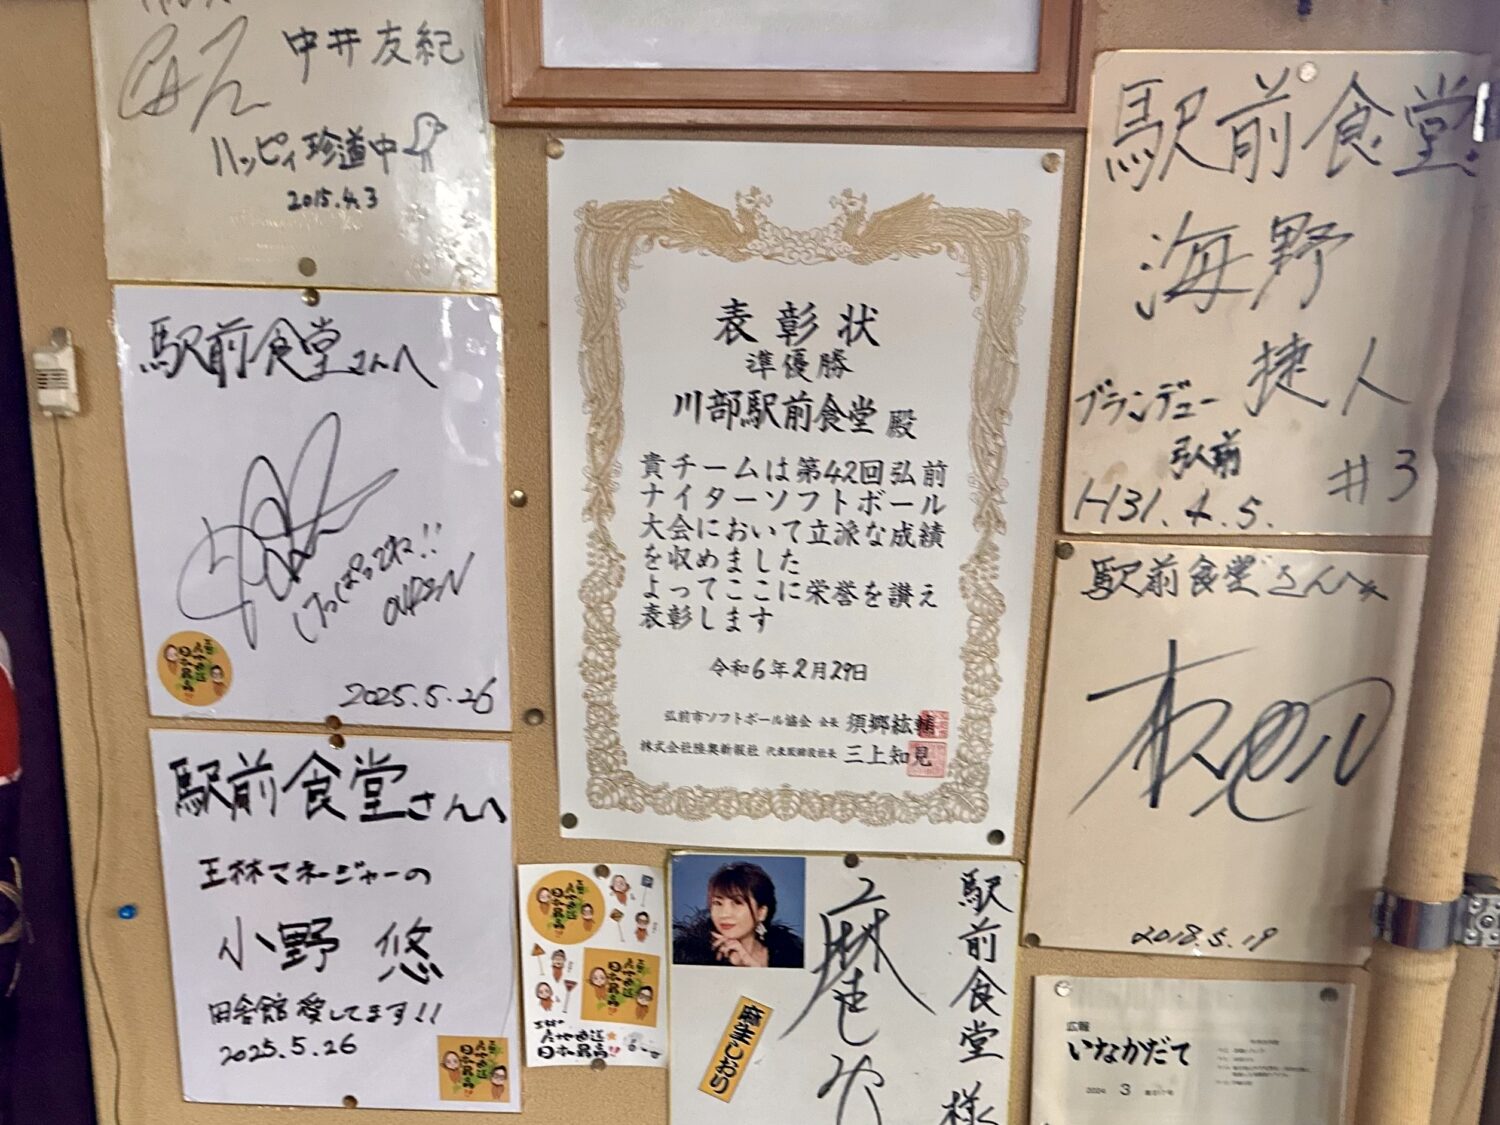 中井友紀
ハッピィ珍道中
2015.4.3
駅前食堂さんへ
けっぱってね!!
2025.5.26
駅前食堂さんへ
王林マネージャーの
小野 悠
田舎館愛してます!!
2025.5.26
表彰状
準優勝
川部駅前食堂 殿
貴チームは第42回弘前
ナイターソフトボール
大会において立派な成績
を収めました
よってここに栄誉を讃え
表彰します
令和6年2月29日
弘前市ソフトボール協会 会長 須郷紘輔
株式会社陸奥新報社 代表取締役社長 三上知見
産地直送
日本最高!!
駅前食堂様
麻生しおり
駅前食堂
海野
捷人
ブランデュー
弘前
#3
H31.4.5.
駅前食堂さんへ
2018.5.19
広報
いなかだて
2024 3